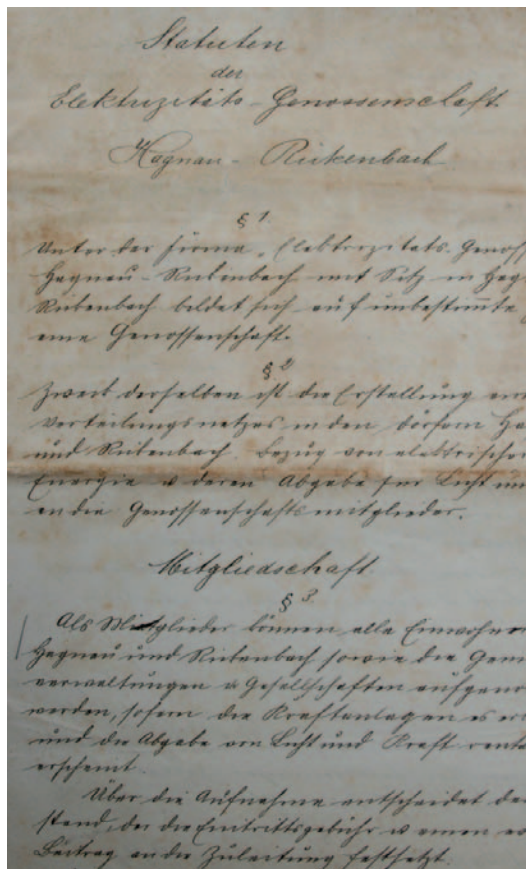 Statuten
der
Elektrizitäts-Genossenschaft
Hagnau-Rickenbach
§ 1.
Unter der Firma „Elektrizitäts-Genoss
Hagnau-Rickenbach mit Sitz in Hag
Rickenbach bildet sich auf unbestimmte
eine Genossenschaft.
§ 2
Zweck derselben ist die Erstellung ein
Verteilungsnetzes in den Dörfern Ha
und Rickenbach. Bezug von elektrischer
Energie u deren Abgabe für Licht un
an die Genossenschaftsmitglieder.
Mitgliedschaft
§ 3.
Als Mitglieder können alle Einwohner
Hagnau und Rickenbach sowie die Gem
verwaltungen u Gesellschaften aufgeno
werden, sofern die Kraftanlagen es er
und die Abgabe von Licht und Kraft renta
erscheint.
Über die Aufnahme entscheidet der
stand, der die Eintrittsgebühr u einen
Beitrag an die Zuleitung festsetzt.